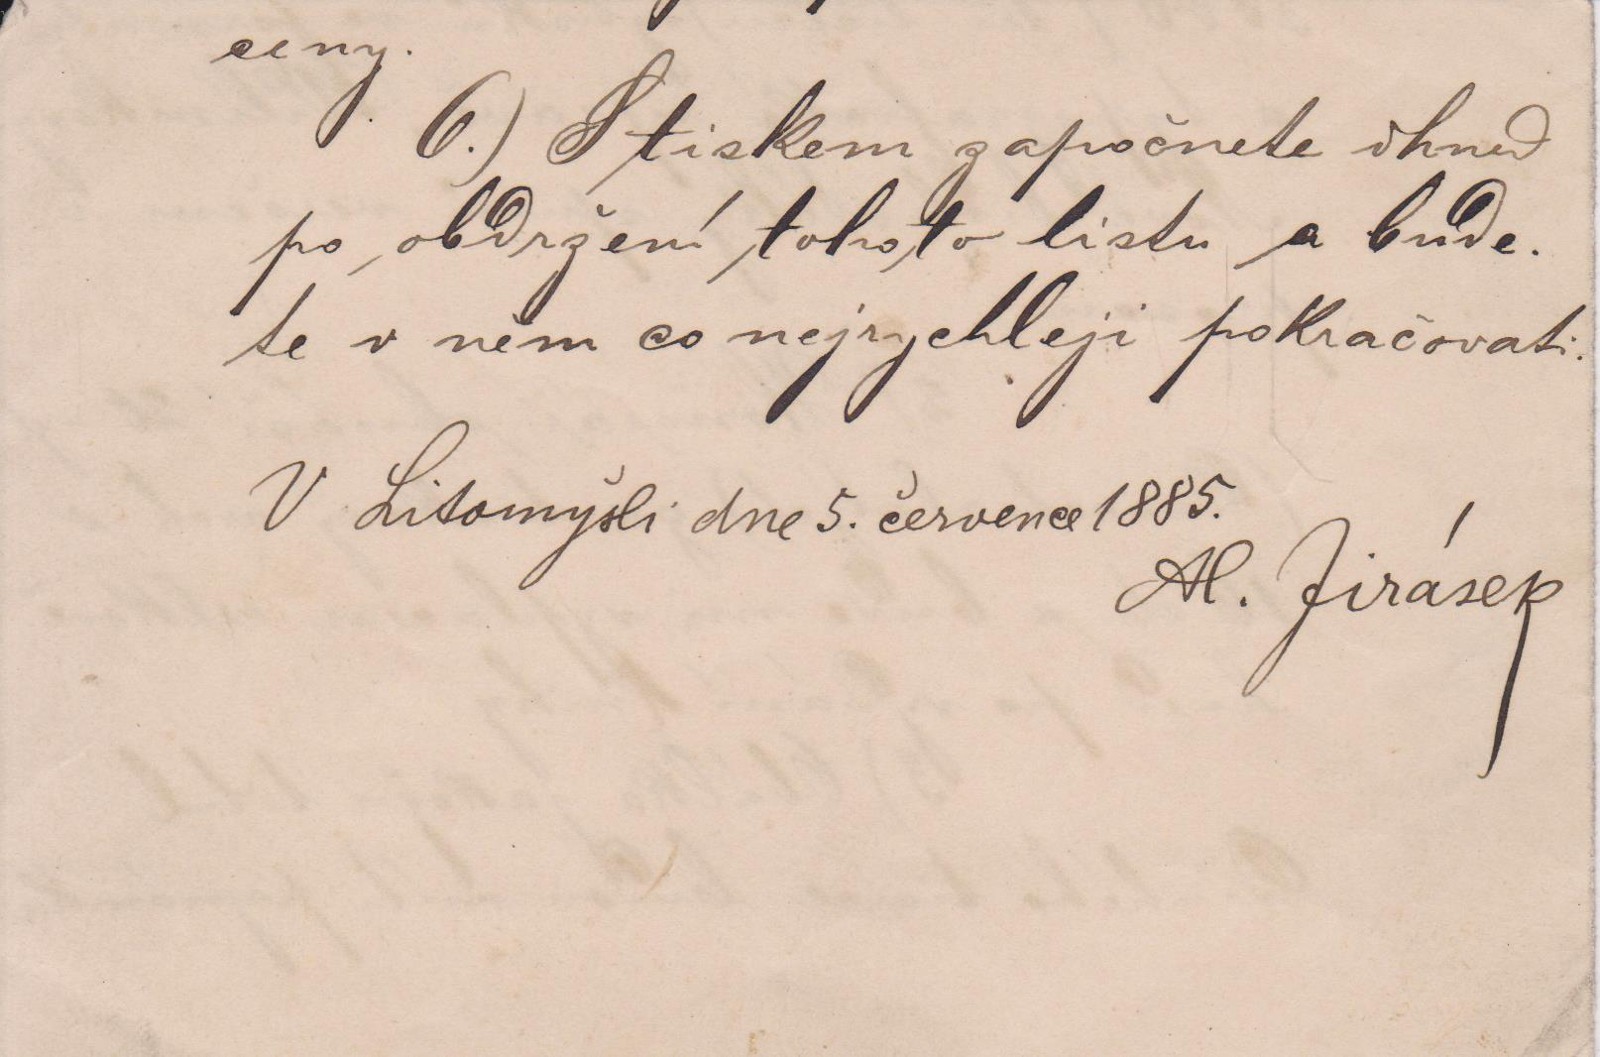 ceny.
6.) S tiskem započnete ihned
po obdržení tohoto listu a bude-
te v něm co nejrychleji pokračovati.
V Litomyšli dne 5. července 1885.
Al. Jirásek